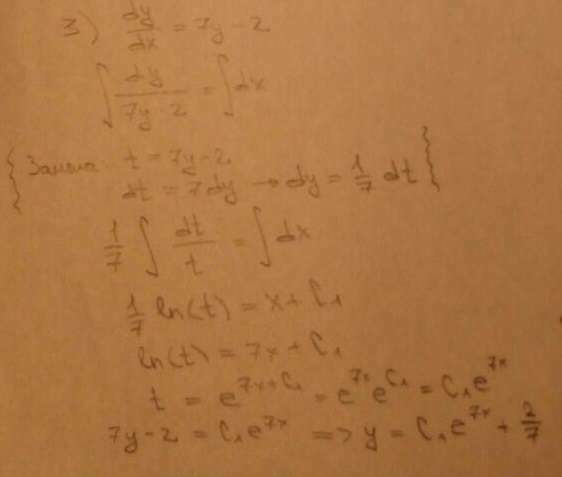 3) dy/dx = 7y - 2
∫ dy/(7y - 2) = ∫ dx
{ Замена: t = 7y - 2
dt = 7dy → dy = 1/7 dt }
1/7 ∫ dt/t = ∫ dx
1/7 ln(t) = x + C₁
ln(t) = 7x + C₁
t = e^(7x+C₁) = e^(7x) e^(C₁) = C₁e^(7x)
7y - 2 = C₁e^(7x) => y = C₁e^(7x) + 2/7